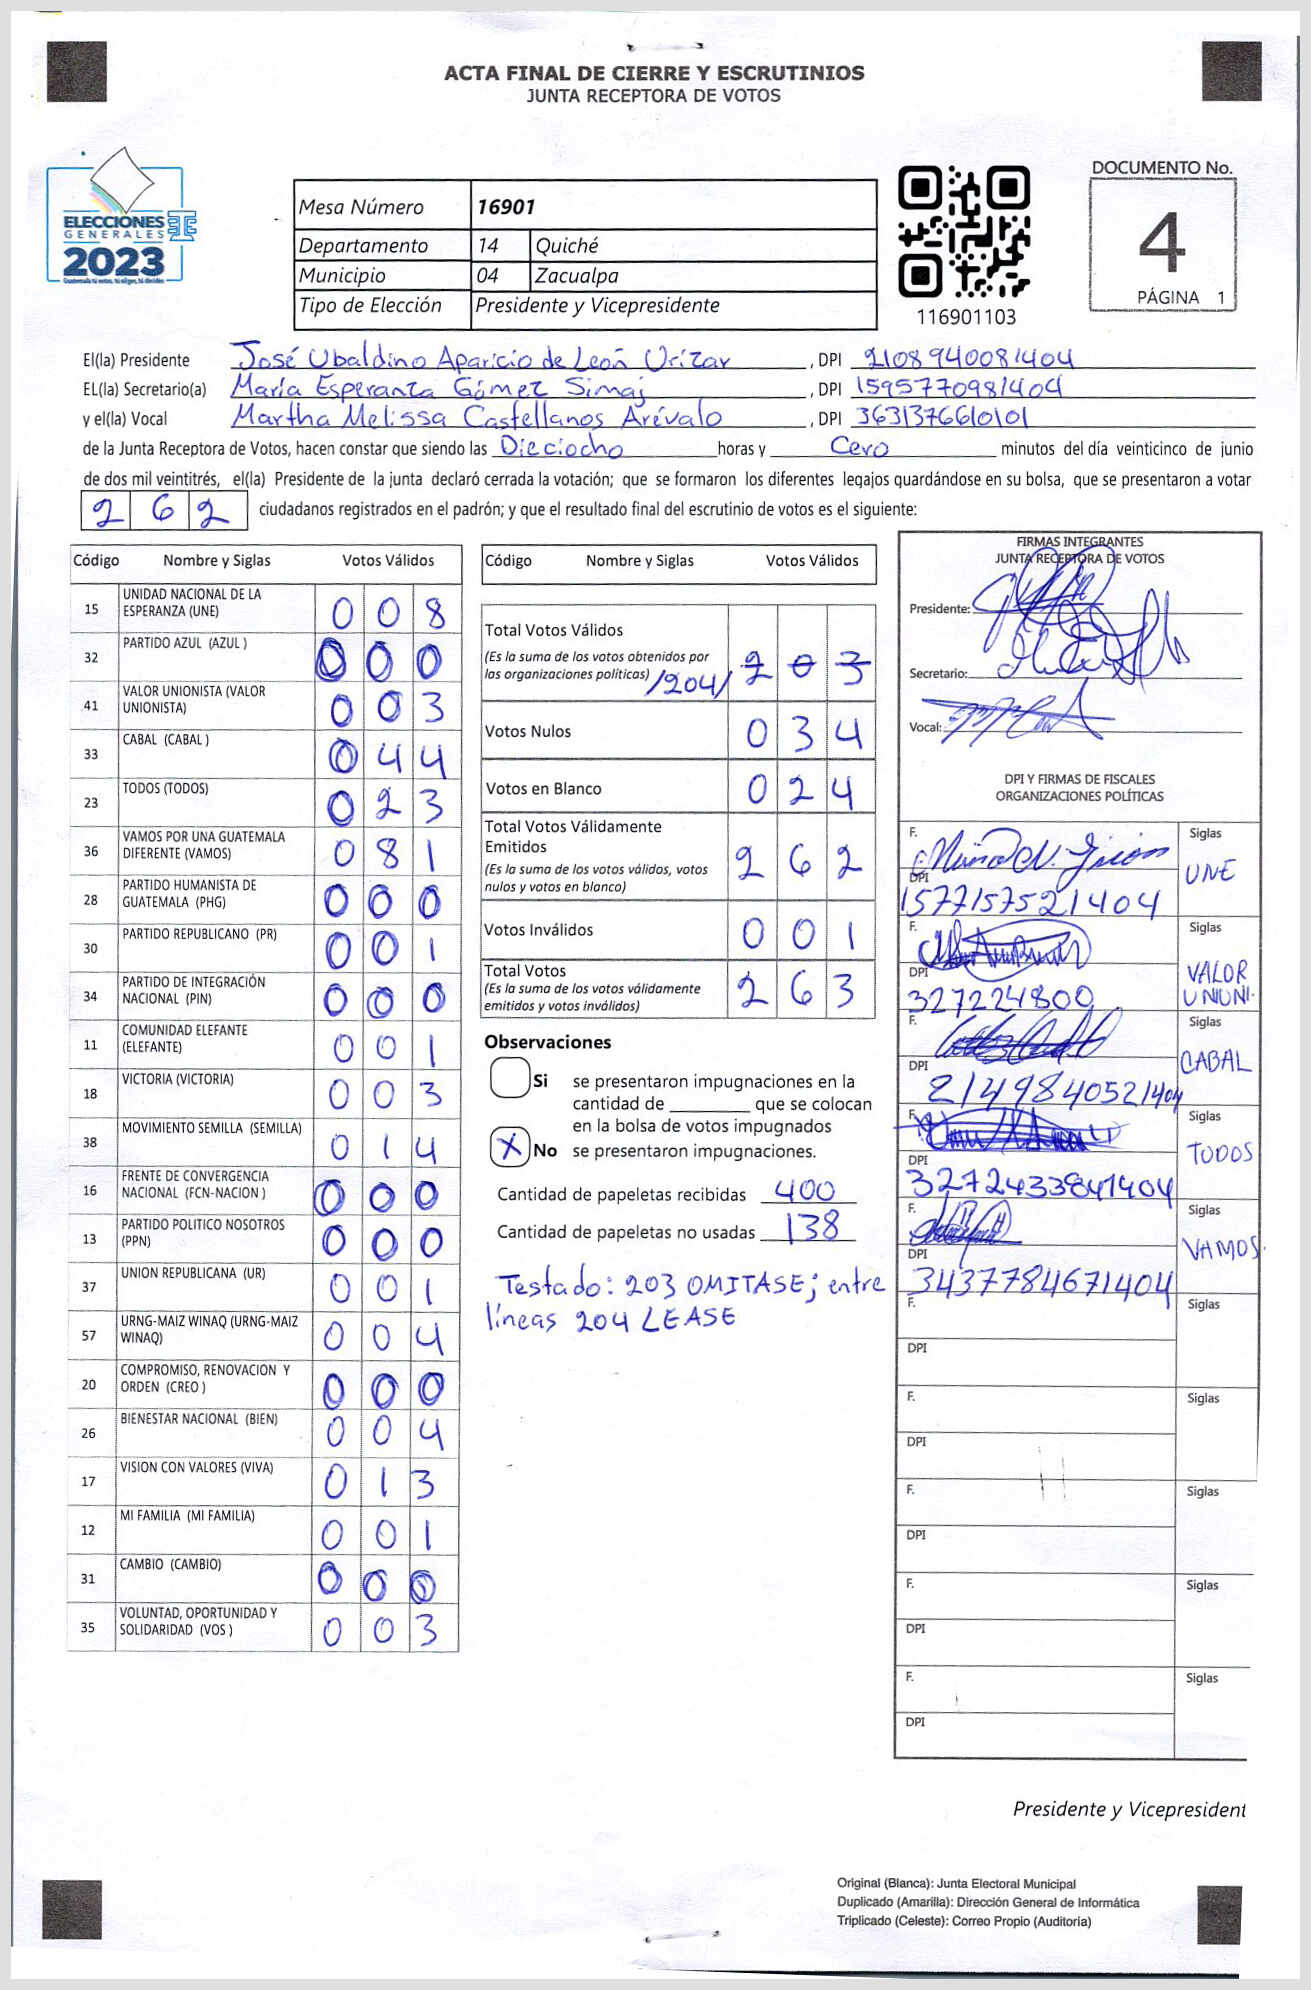 ACTA FINAL DE CIERRE Y ESCRUTINIOS
JUNTA RECEPTORA DE VOTOS
ELECCIONES
GENERALES
2023
Guatemala tú votas, tú eliges, tú decides
Mesa Número 16901
Departamento 14 Quiché
Municipio 04 Zacualpa
Tipo de Elección Presidente y Vicepresidente
116901103
DOCUMENTO No.
4
PÁGINA 1
El(la) Presidente José Ubaldino Aparicio de León Urízar, DPI 2108940081404
EL(la) Secretario(a) María Esperanza Gómez Simaj, DPI 1595770981404
y el(la) Vocal Martha Melissa Castellanos Arévalo, DPI 3631376610101
de la Junta Receptora de Votos, hacen constar que siendo las Dieciocho horas y Cero minutos del día veinticinco de junio
de dos mil veintitrés, el(la) Presidente de la junta declaró cerrada la votación; que se formaron los diferentes legajos guardándose en su bolsa, que se presentaron a votar
262 ciudadanos registrados en el padrón; y que el resultado final del escrutinio de votos es el siguiente:
Código Nombre y Siglas Votos Válidos
15 UNIDAD NACIONAL DE LA ESPERANZA (UNE) 008
32 PARTIDO AZUL (AZUL ) 000
41 VALOR UNIONISTA (VALOR UNIONISTA) 003
33 CABAL (CABAL ) 044
23 TODOS (TODOS) 023
36 VAMOS POR UNA GUATEMALA DIFERENTE (VAMOS) 081
28 PARTIDO HUMANISTA DE GUATEMALA (PHG) 000
30 PARTIDO REPUBLICANO (PR) 001
34 PARTIDO DE INTEGRACIÓN NACIONAL (PIN) 000
11 COMUNIDAD ELEFANTE (ELEFANTE) 001
18 VICTORIA (VICTORIA) 003
38 MOVIMIENTO SEMILLA (SEMILLA) 014
16 FRENTE DE CONVERGENCIA NACIONAL (FCN-NACION ) 000
13 PARTIDO POLITICO NOSOTROS (PPN) 000
37 UNION REPUBLICANA (UR) 001
57 URNG-MAIZ WINAQ (URNG-MAIZ WINAQ) 004
20 COMPROMISO, RENOVACION Y ORDEN (CREO ) 000
26 BIENESTAR NACIONAL (BIEN) 004
17 VISION CON VALORES (VIVA) 013
12 MI FAMILIA (MI FAMILIA) 001
31 CAMBIO (CAMBIO) 000
35 VOLUNTAD, OPORTUNIDAD Y SOLIDARIDAD (VOS ) 003
Código Nombre y Siglas Votos Válidos
Total Votos Válidos
(Es la suma de los votos obtenidos por
las organizaciones políticas) /204/ 203
Votos Nulos 034
Votos en Blanco 024
Total Votos Válidamente
Emitidos 262
(Es la suma de los votos válidos, votos
nulos y votos en blanco)
Votos Inválidos 001
Total Votos 263
(Es la suma de los votos válidamente
emitidos y votos inválidos)
Observaciones
Si se presentaron impugnaciones en la
cantidad de ________ que se colocan
en la bolsa de votos impugnados
X No se presentaron impugnaciones.
Cantidad de papeletas recibidas 400
Cantidad de papeletas no usadas 138
Testado: 203 OMITASE; entre
líneas 204 LEASE
FIRMAS INTEGRANTES
JUNTA RECEPTORA DE VOTOS
Presidente:
Secretario:
Vocal:
DPI Y FIRMAS DE FISCALES
ORGANIZACIONES POLÍTICAS
F. Siglas
UNE
DPI
1577157521404
F. Siglas
VALOR
UNIONI.
DPI
327224800
F. Siglas
CABAL
DPI
2149840521404
F. Siglas
TODOS
DPI
3272433841404
F. Siglas
VAMOS.
DPI
3437784671404
F. Siglas
DPI
F. Siglas
DPI
F. Siglas
DPI
F. Siglas
DPI
F. Siglas
DPI
Presidente y Vicepresident
Original (Blanca): Junta Electoral Municipal
Duplicado (Amarilla): Dirección General de Informática
Triplicado (Celeste): Correo Propio (Auditoria)